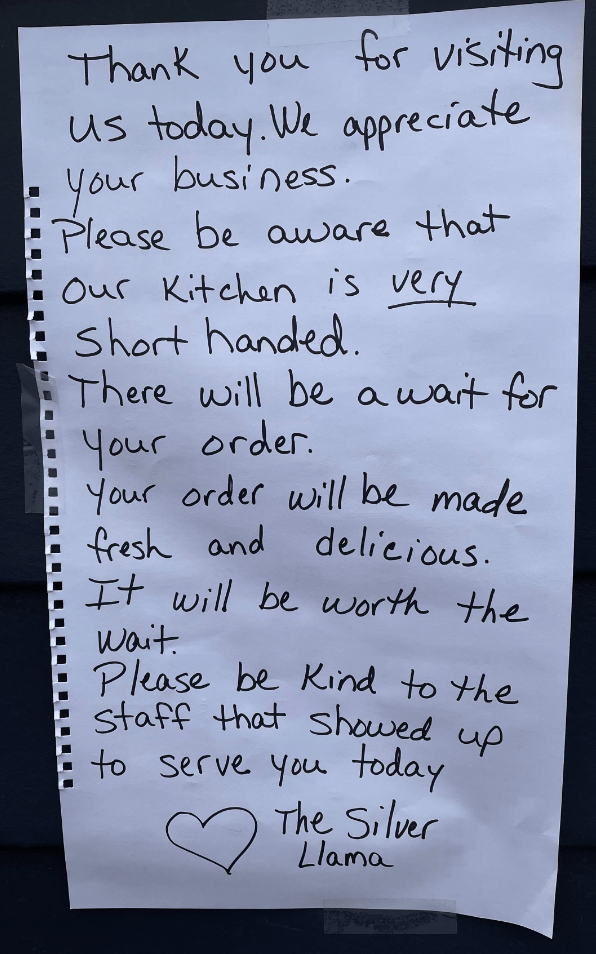 Thank you for visiting
us today. We appreciate
your business.
Please be aware that
our kitchen is very
short handed.
There will be a wait for
your order.
Your order will be made
fresh and delicious.
It will be worth the
wait.
Please be kind to the
staff that showed up
to serve you today
The Silver
Llama